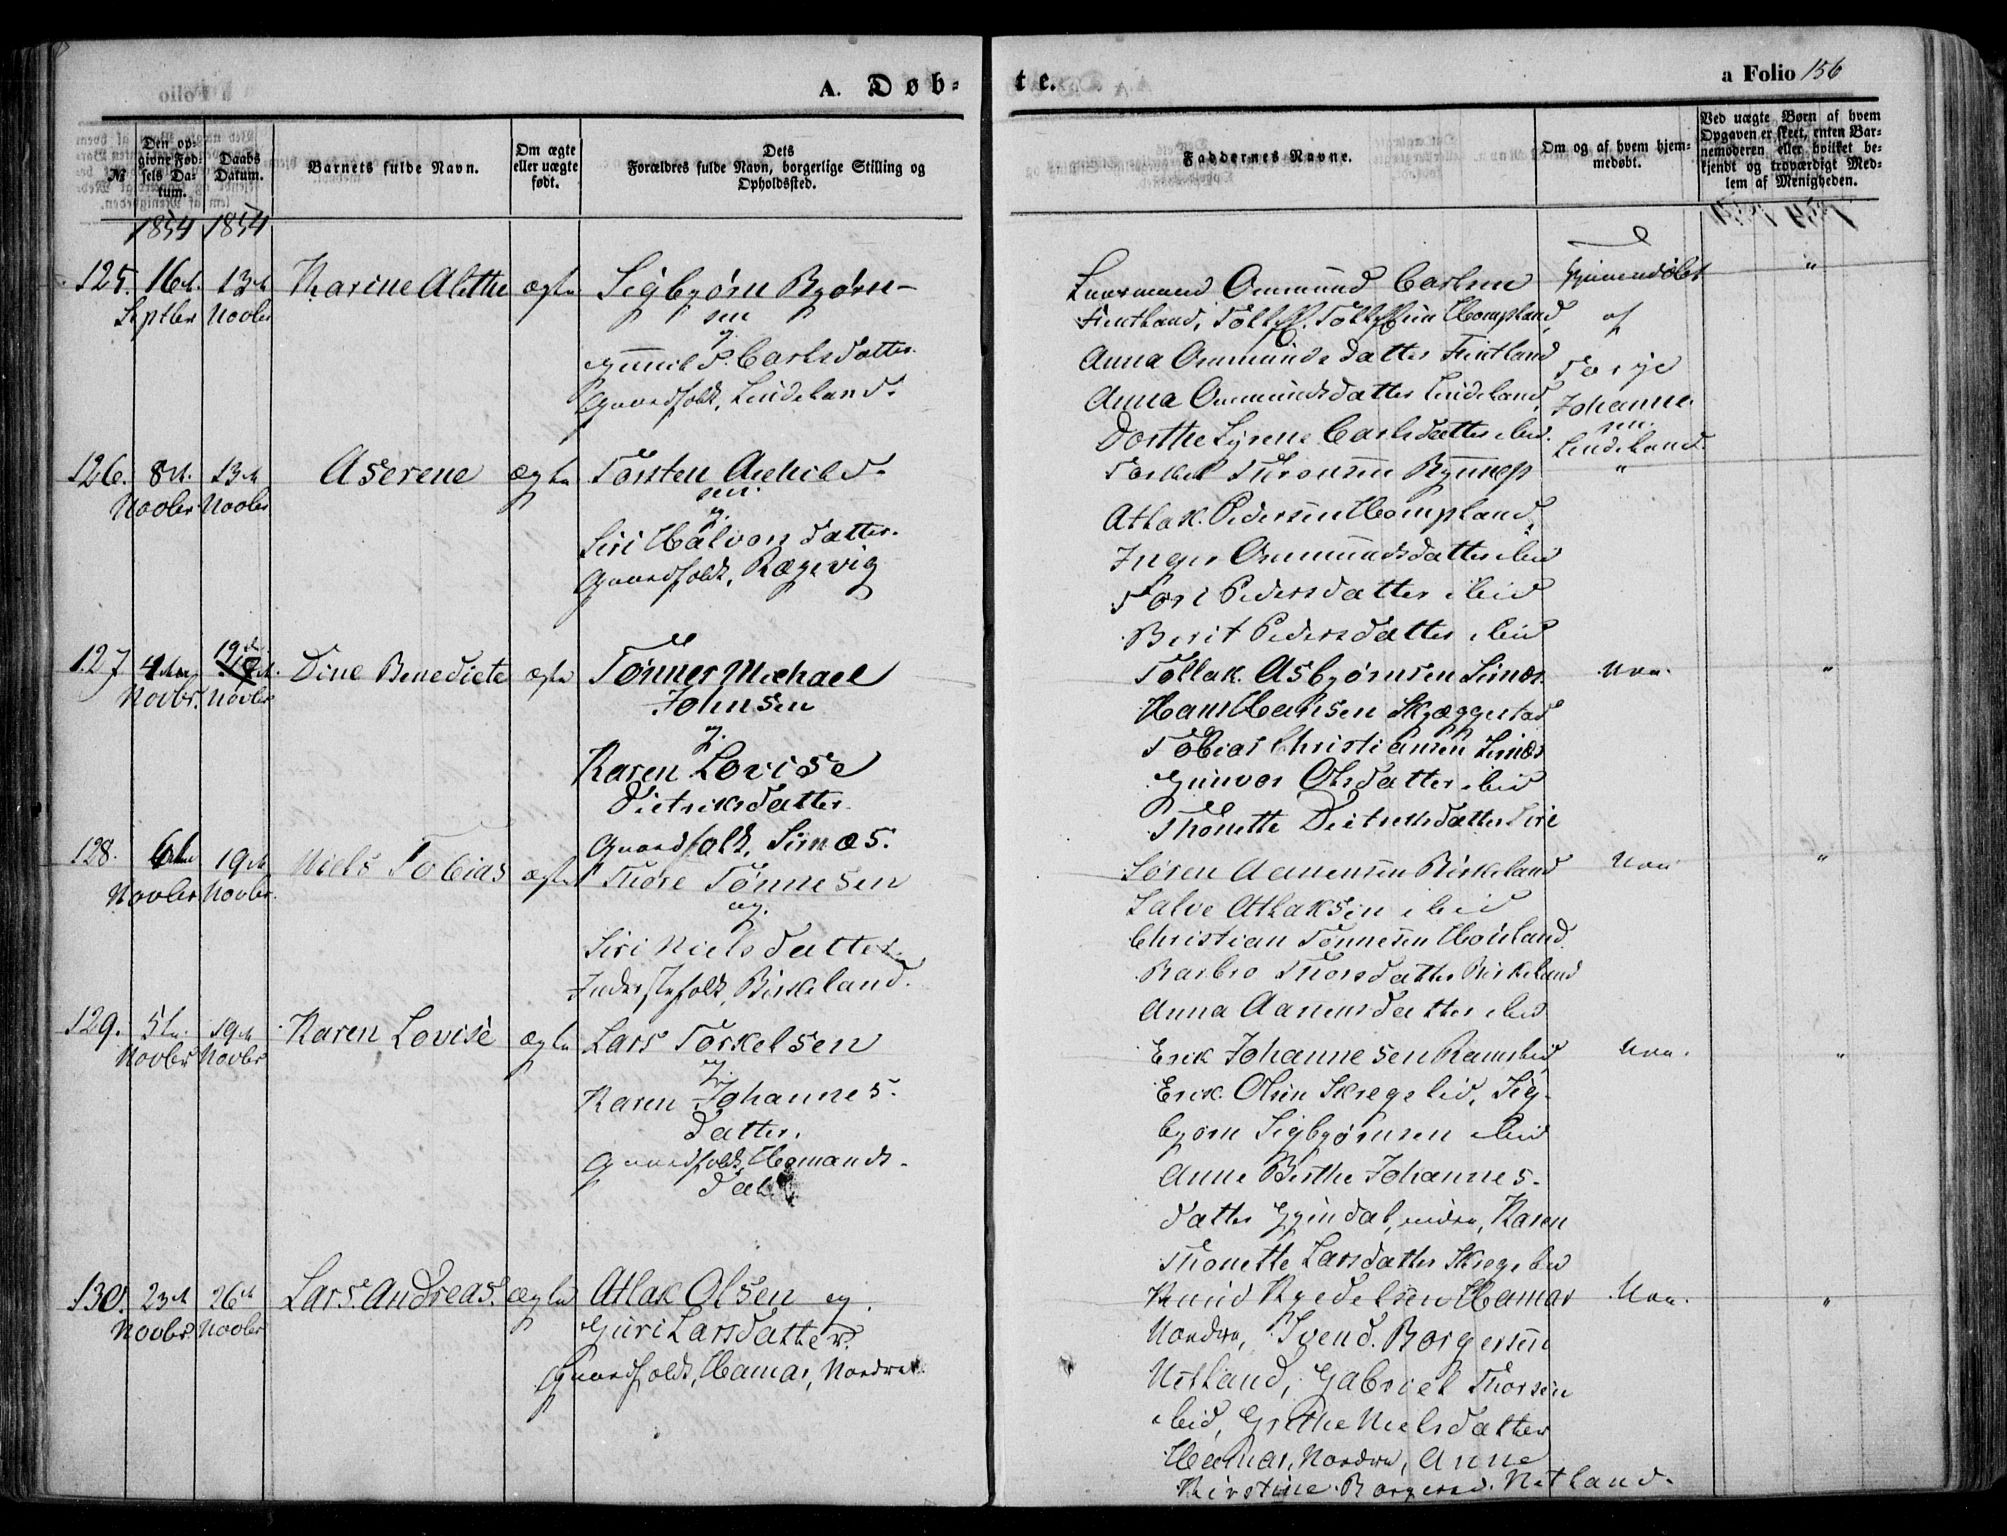 A. Døb-
te.
a Folio 156
№
Den op-
givne Fød-
sels Da-
tum.
Daabs
Datum.
Barnets fulde Navn.
Om ægte
eller uægte
født.
Dets
Forældres fulde Navn, borgerlige Stilling og
Opholdssted.
Faddernes Navne.
Om og af hvem hjem-
medøbt.
Ved uægte Børn af hvem
Opgaven er skeet, enten Bar-
nemoderen eller hvilket be-
kjendt og troværdigt Med-
lem af Menigheden.
1854 1854
125. 16de 13de Karine Alethe ægte Sigbjørn Bjørn-
Septbr Novbr sen
og
Gunild P. Carlsdatter
Gaardfolk, Lindeland.
Ommund Carlsen
Fintland, Tollef Tollefsen Hompland,
Anna Ommundsdatter Fintland
Anna Ommundsdatter Lindeland,
Dorthe Syrene Carlsdatter ibid.
Hjemmedøbt
af
Terje
Johanne-
sen
Lindeland.
"
126. 8de 13de Aserene ægte Torsten Arild-
Novbr Novbr sen
og
Siri Halvorsdatter.
Gaardfolk, Rægevig
Torkel
Atlak Pedersen Hompland,
Inger Ommundsdatter ibid
Tori Pedersdatter ibid
Berit Pedersdatter ibid
"
127 4de 19de Dine Benedicte ægte Tønnes Michael
Novbr. Novbr Johnsen
og
Karen Lovise
Dietriksdatter
Gaardfolk, Sirnæs.
Tollak Asbjørnsen Sirnæs.
Hans Hansen Skjæggestad
Tobias Christiansen Sirnæs
Gunvor Olsdatter ibid
Thonette Dietrichsdatter Siri
Nei.
"
128. 6te 19de Niels Tobias ægte Thore Tønnesen
Novbr Novbr. og
Siri Nielsdatter
Inderstefolk, Birkeland.
Søren Aanensen Birkeland
Salve Atlaksen ibid
Christian Tønnesen Houland
Barbro Thorsdatter Birkeland
Anna Aanensdatter ibid
Nei
"
129. 5te 19de Karen Lovise ægte Lars Torkelsen
Novbr Novbr og
Karen Johannes-
datter.
Gaardfolk, Homands-
dal
Erik Johannesen Ramslid,
Erik Olsen Skregelid, Sig-
bjørn Sigbjørnsen ibid
Anne Birthe Johannes-
datter Gyindal, nedre, Karen
Thonette Larsdatter Skregelid
Nei.
"
130. 23de 26de Lars Andreas. ægte Atlak Olsen og
Novbr Novbr Guri Larsdatter.
Gaardfolk, Hamar, Nordre
Knud Kjedelsen Hamar
Nordre, Svend Borgersen
Netland, Gabriel Thorsen
ibid, Grethe Nielsdatter
Hamar, Nordre, Anne
Kirstine Borgersd. Netland.
Nei.
"